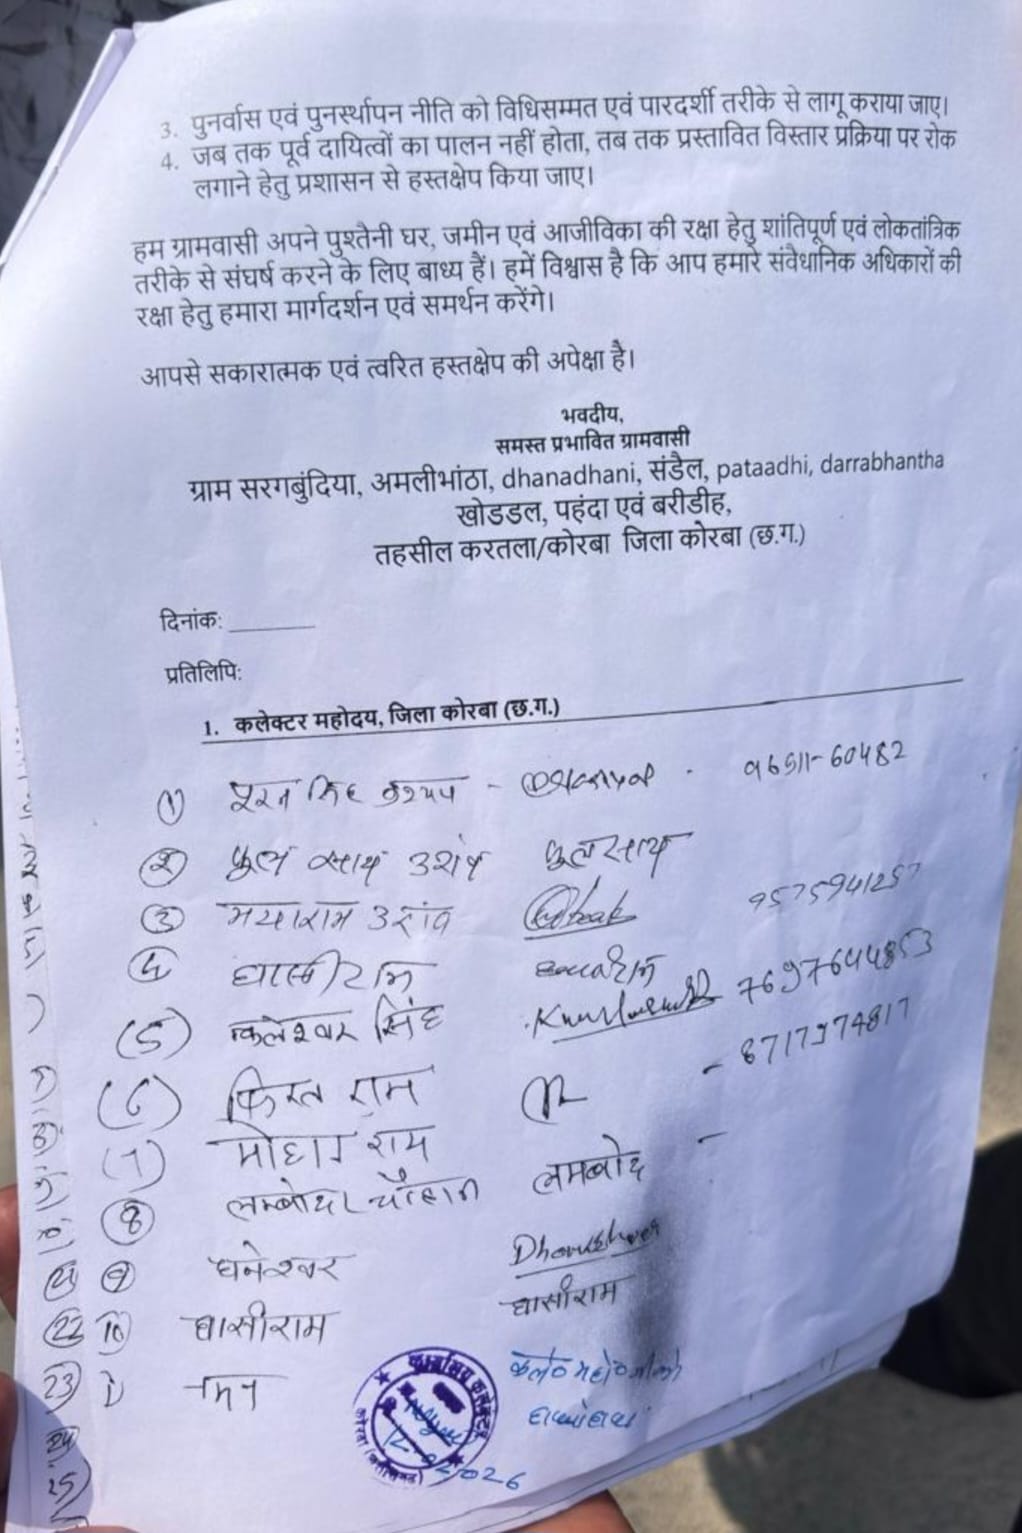 3. पुनर्वास एवं पुनर्स्थापन नीति को विधिसम्मत एवं पारदर्शी तरीके से लागू कराया जाए।
4. जब तक पूर्व दायित्वों का पालन नहीं होता, तब तक प्रस्तावित विस्तार प्रक्रिया पर रोक
लगाने हेतु प्रशासन से हस्तक्षेप किया जाए।
हम ग्रामवासी अपने पुश्तैनी घर, जमीन एवं आजीविका की रक्षा हेतु शांतिपूर्ण एवं लोकतांत्रिक
तरीके से संघर्ष करने के लिए बाध्य हैं। हमें विश्वास है कि आप हमारे संवैधानिक अधिकारों की
रक्षा हेतु हमारा मार्गदर्शन एवं समर्थन करेंगे।
आपसे सकारात्मक एवं त्वरित हस्तक्षेप की अपेक्षा है।
भवदीय,
समस्त प्रभावित ग्रामवासी
ग्राम सरगबुंदिया, अमलीभांठा, dhanadhani, संडैल, pataadhi, darrabhantha
खोडडल, पहंदा एवं बरीडीह,
तहसील करतला/कोरबा जिला कोरबा (छ.ग.)
दिनांक:
प्रतिलिपि:
1. कलेक्टर महोदय, जिला कोरबा (छ.ग.)
(1) पूरन सिंह कश्यप - 96911-60482
(2) फूल साय उरांव फूलसाय
(3) मयाराम उरांव 9575941257
(4) घासीराम
(5) कलेश्वर सिंह 7697644853
(6) फिरत राम - 8717974817
(7) मोहार राम
(8) लम्बोदर चौहान लमबोद
(9) धनेश्वर Dhaneshwar
22 10 घासीराम घासीराम
23
कार्यालय कलेक्टर
कोरबा (छत्तीसगढ़)
12/02/2026